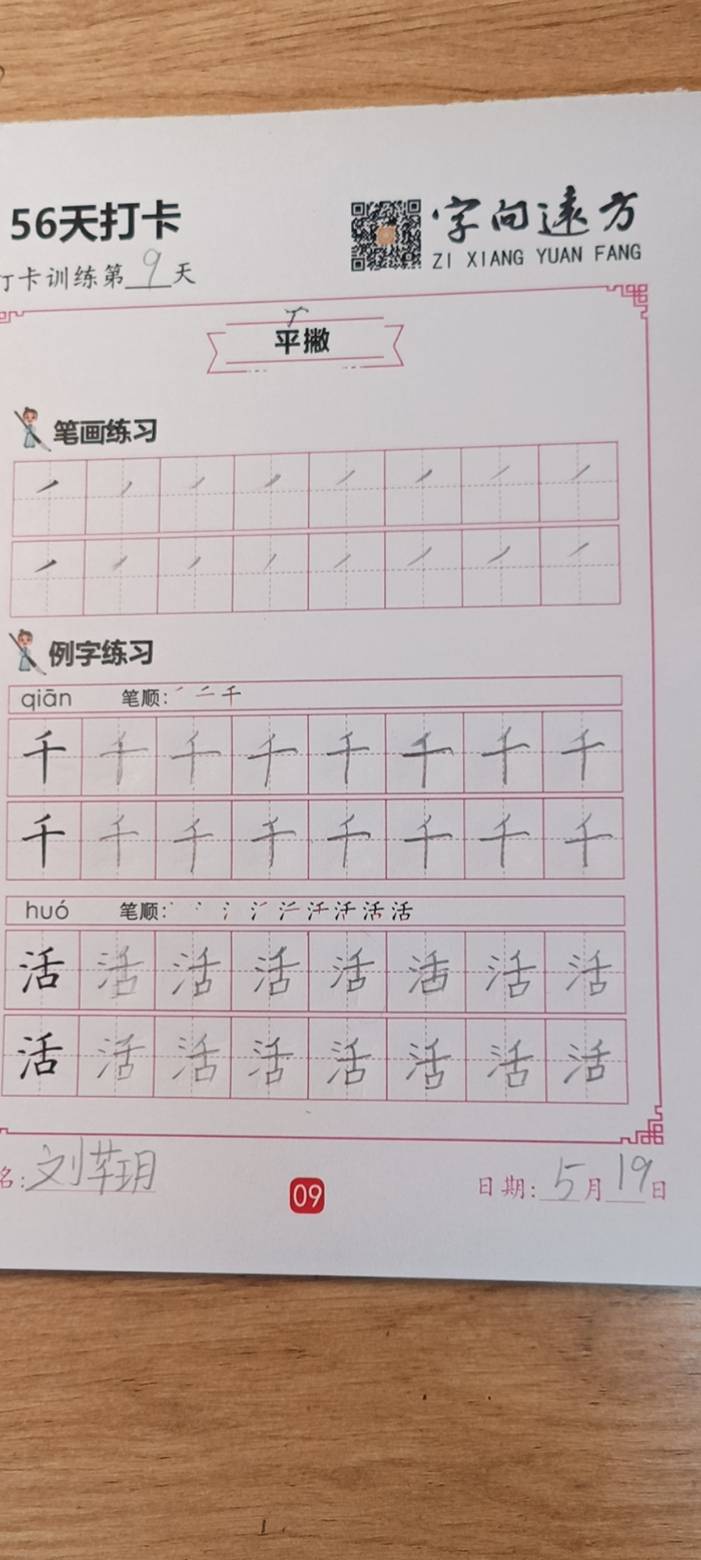 56天打卡
字向远方
ZI XIANG YUAN FANG
打卡训练第9天
平撇
笔画练习
例字练习
qiān 笔顺:
千千千千千千千千
千千千千千千千千
huó 笔顺:
活活活活活活活活
活活活活活活活活
名:刘莘玥
09
日期:5月19日